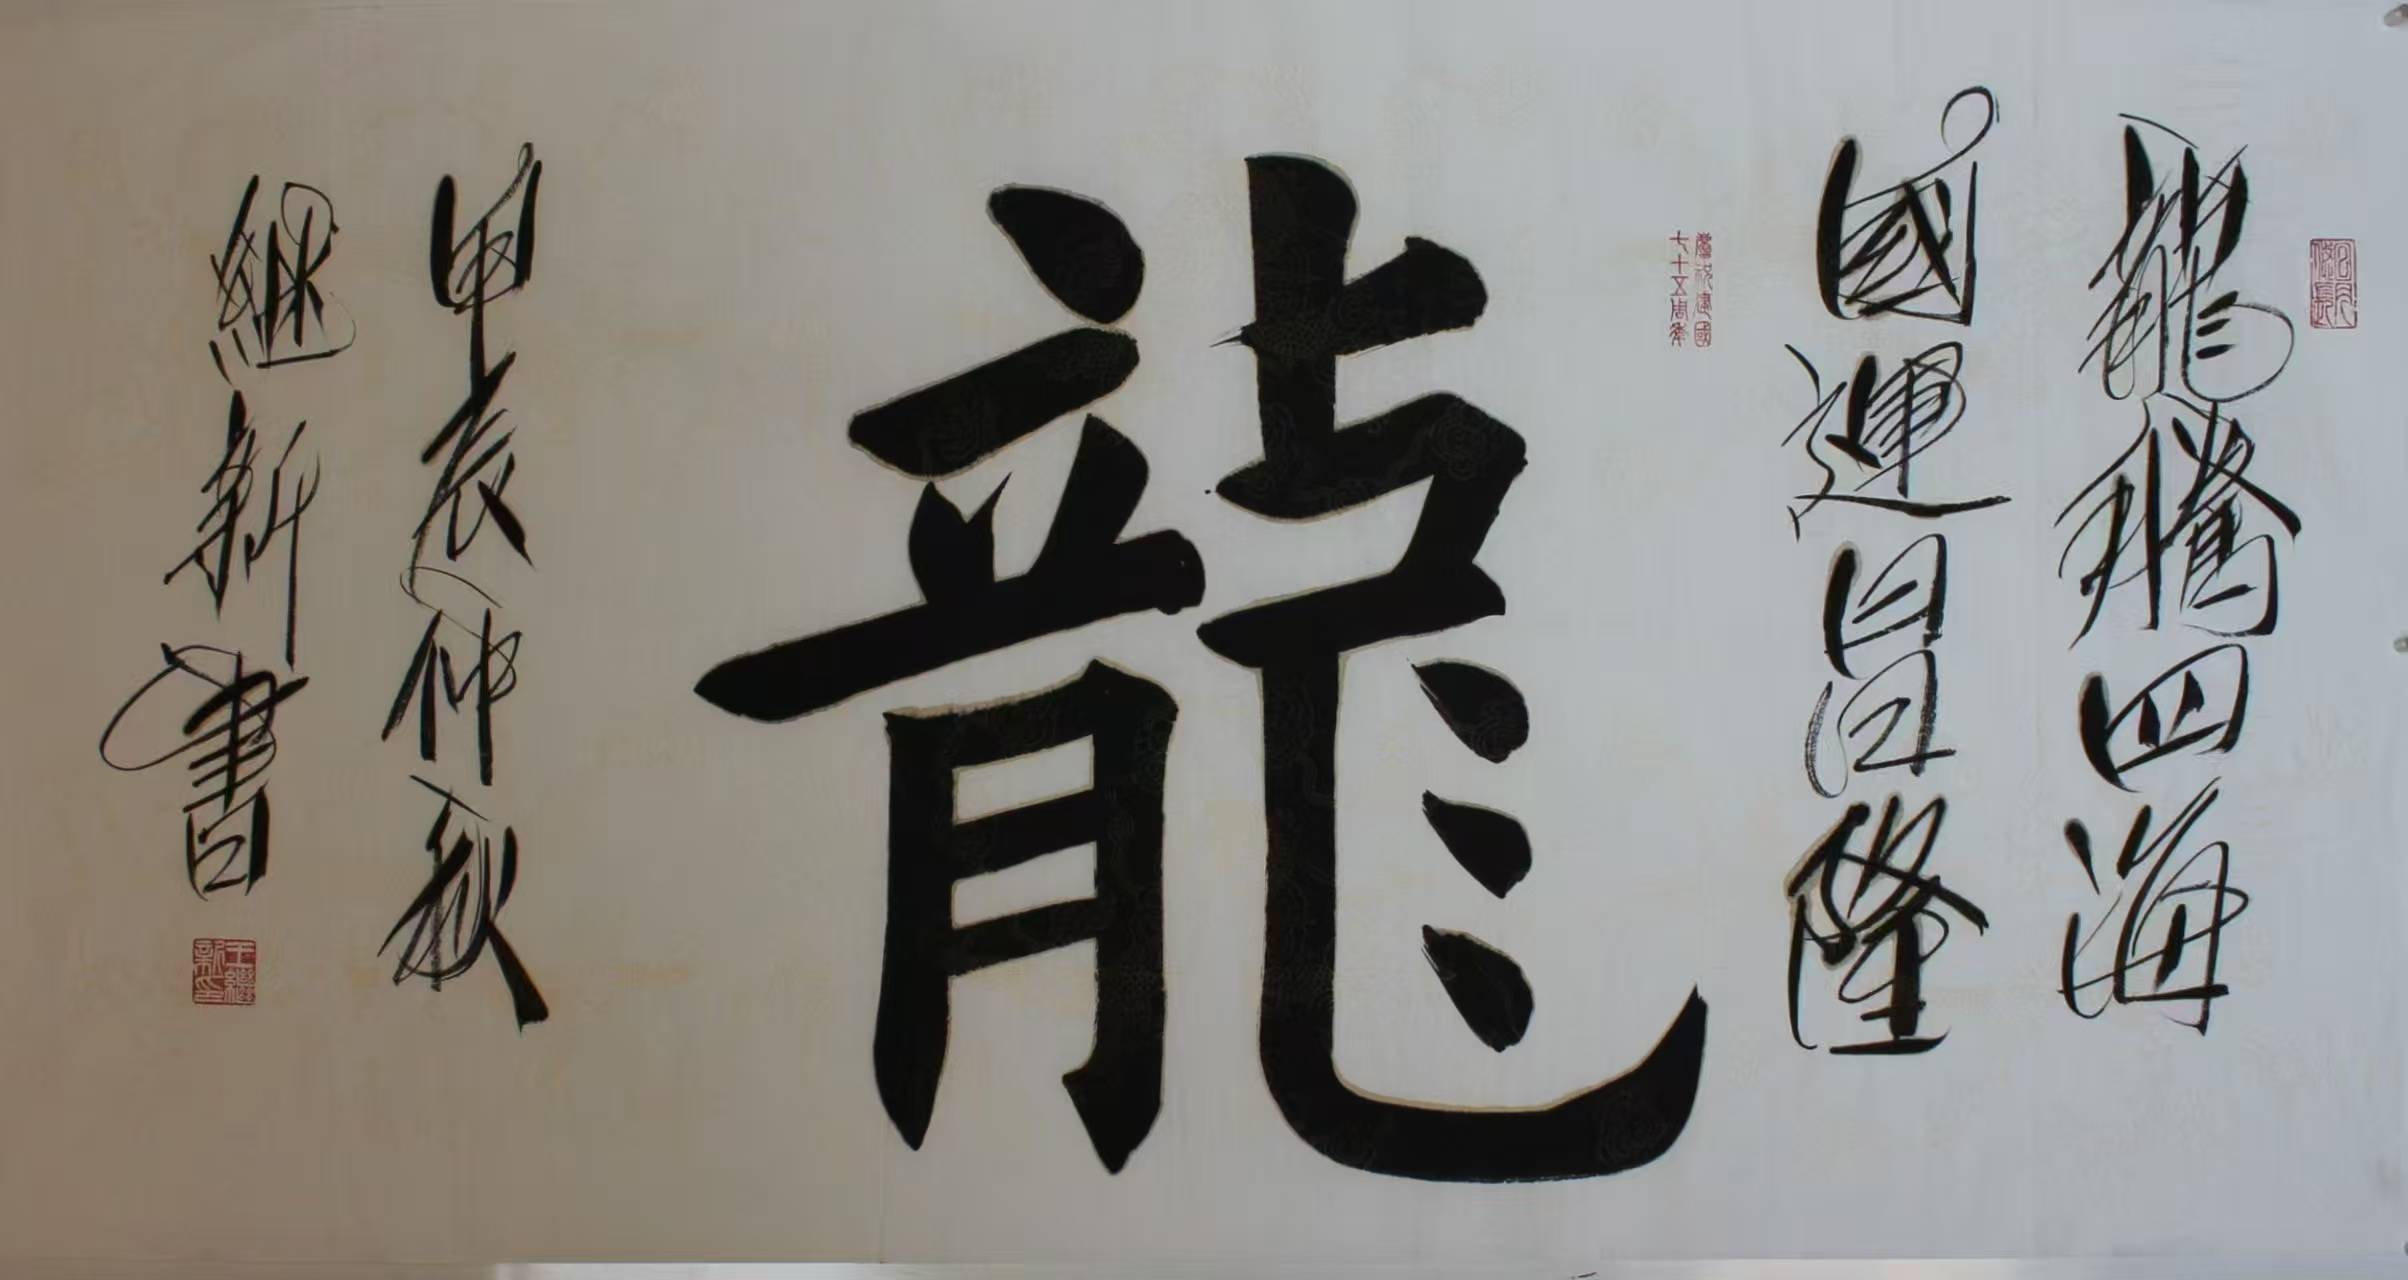 龍騰四海
國運昌隆
慶祝建國
七十五周年
龍
甲辰仲秋
繼新書
王繼新印